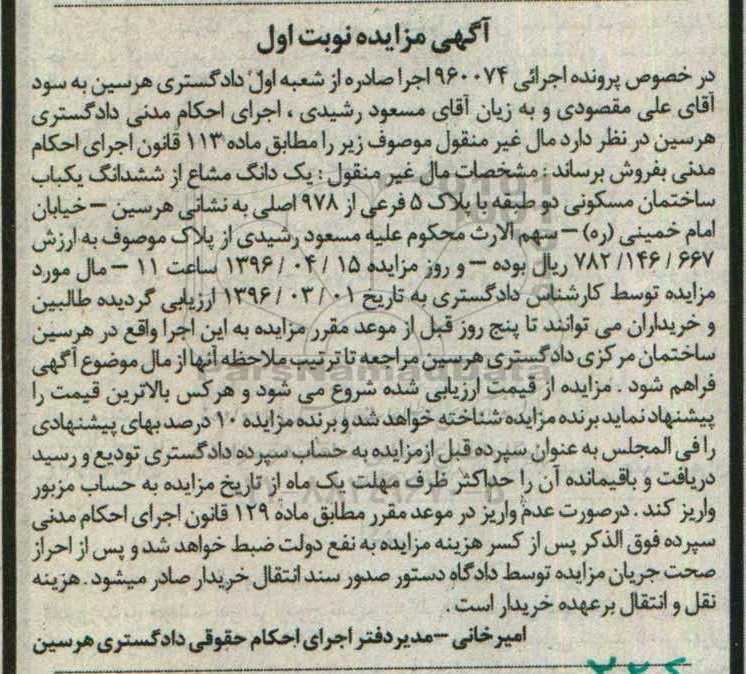 آگهی مزایده نوبت اول
در خصوص پرونده اجرائی ۹۶۰۰۷۴ اجرا صادره از شعبه اول دادگستری هرسین به سود
آقای علی مقصودی و به زیان آقای مسعود رشیدی ، اجرای احکام مدنی دادگستری
هرسین در نظر دارد مال غیر منقول موصوف زیر را مطابق ماده ۱۱۳ قانون اجرای احکام
مدنی بفروش برساند : مشخصات مال غیر منقول : یک دانگ مشاع از ششدانگ یکباب
ساختمان مسکونی دو طبقه با پلاک ۵ فرعی از ۹۷۸ اصلی به نشانی هرسین – خیابان
امام خمینی (ره) – سهم الارث محکوم علیه مسعود رشیدی از پلاک موصوف به ارزش
۷۸۲/۱۴۶/۶۶۷ ریال بوده – و روز مزایده ۱۵ / ۰۴ / ۱۳۹۶ ساعت ۱۱ – مال مورد
مزایده توسط کارشناس دادگستری به تاریخ ۰۱ / ۰۳ / ۱۳۹۶ ارزیابی گردیده طالبین
و خریداران می توانند تا پنج روز قبل از موعد مقرر مزایده به این اجرا واقع در هرسین
ساختمان مرکزی دادگستری هرسین مراجعه تا ترتیب ملاحظه آنها از مال موضوع آگهی
فراهم شود . مزایده از قیمت ارزیابی شده شروع می شود و هرکس بالاترین قیمت را
پیشنهاد نماید برنده مزایده شناخته خواهد شد و برنده مزایده ۱۰ درصد بهای پیشنهادی
را فی المجلس به عنوان سپرده قبل ازمزایده به حساب سپرده دادگستری تودیع و رسید
دریافت و باقیمانده آن را حداکثر ظرف مهلت یک ماه از تاریخ مزایده به حساب مزبور
واریز کند . درصورت عدم واریز در موعد مقرر مطابق ماده ۱۲۹ قانون اجرای احکام مدنی
سپرده فوق الذکر پس از کسر هزینه مزایده به نفع دولت ضبط خواهد شد و پس از احراز
صحت جریان مزایده توسط دادگاه دستور صدور سند انتقال خریدار صادر میشود . هزینه
نقل و انتقال برعهده خریدار است .
امیرخانی – مدیردفتر اجرای احکام حقوقی دادگستری هرسین
ParsNamadData